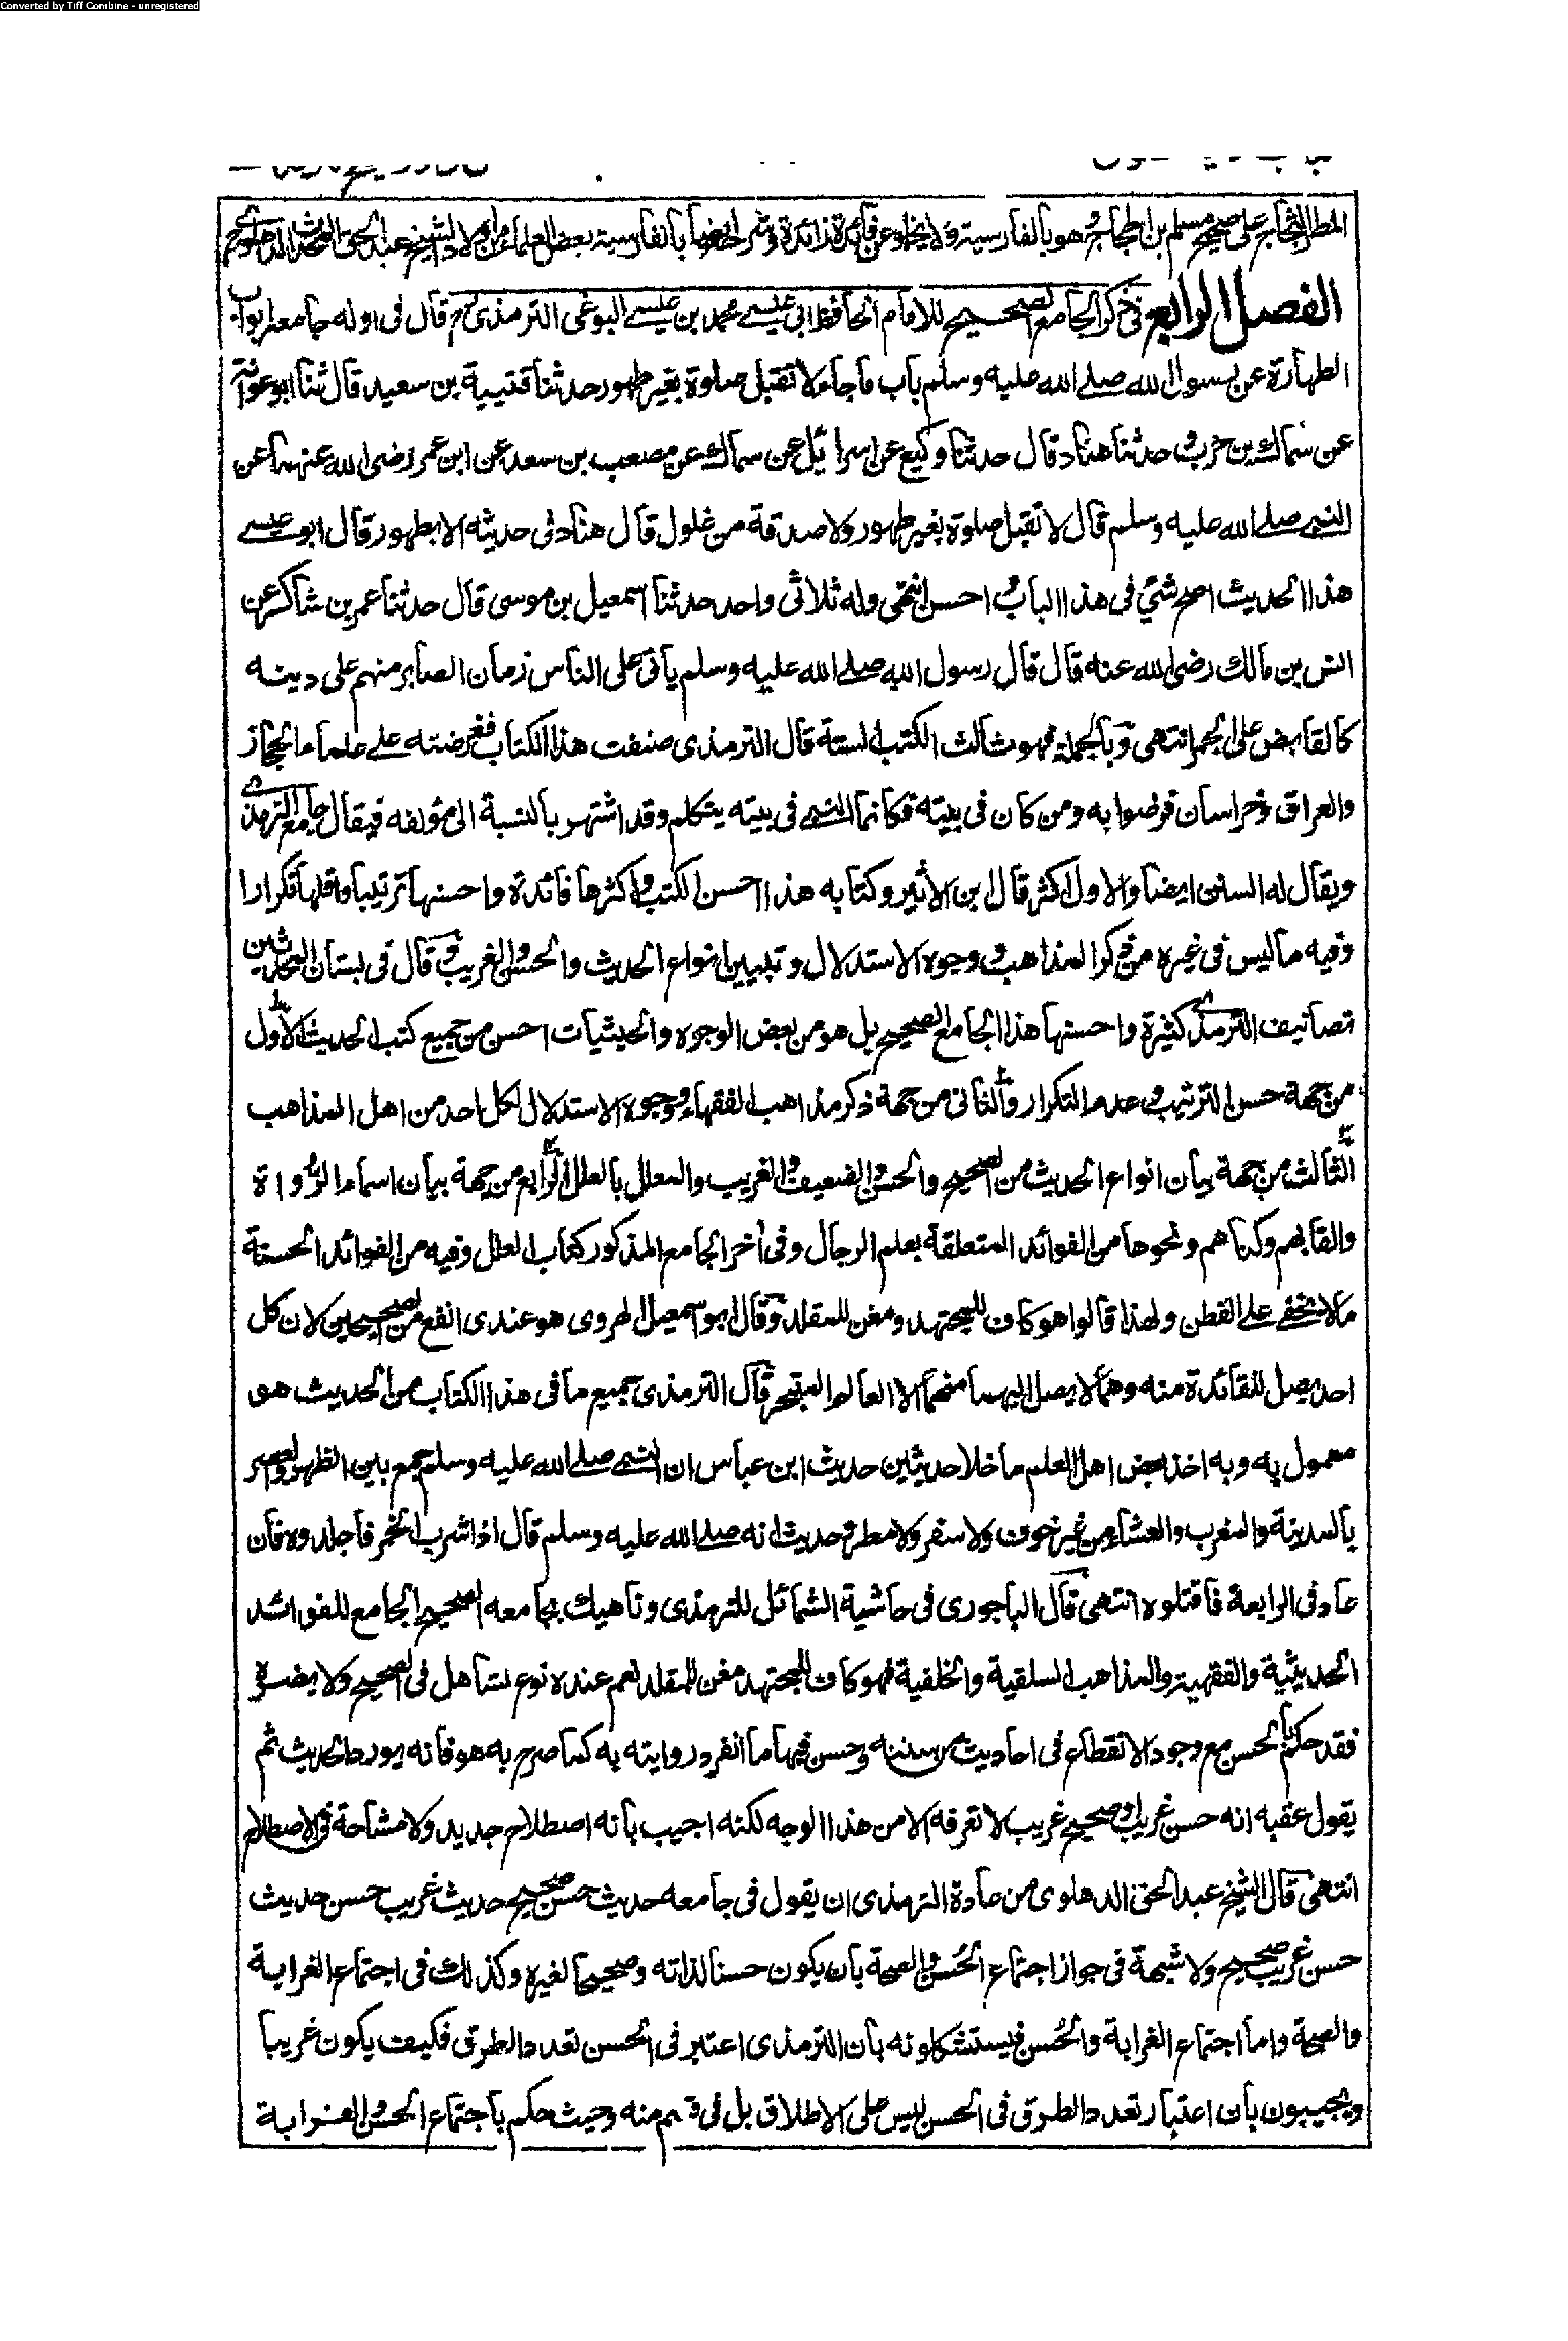 Converted by Tiff Combine - unregistered
المطر الثجاج على صحيح مسلم بن الحجاج وهو بالفارسية ولا يخلو عن فائدة زائدة وشرح ايضا بالفارسية بعض العلماء من اولاد الشيخ عبد الحق المحدث الدهلوي
الفصل الرابع في ذكر الجامع الصحيح للامام الحافظ ابي عيسى محمد بن عيسى البوغي الترمذي قال في اوله جامعه ابواب
الطهارة عن رسول الله صلى الله عليه وسلم باب ما جاء لا تقبل صلوة بغير طهور حدثنا قتيبية بن سعيد قال ثنا ابو عوانة
عن سماك بن حرب و حدثنا هناد قال حدثنا وكيع عن اسرائيل عن سماك عن مصعب بن سعد عن ابن عمر رضى الله عنهما عن
النبي صلى الله عليه وسلم قال لا تقبل صلوة بغير طهور ولا صدقة من غلول قال هناد في حديثه الا بطهور قال ابو عيسى
هذا الحديث اصح شئ في هذا الباب و احسن انتهى وله ثلاثى واحد حدثنا اسمعيل بن موسى قال حدثنا عمر بن شاكر عن
انس بن مالك رضى الله عنه قال قال رسول الله صلى الله عليه وسلم يأتى على الناس زمان الصابر منهم على دينه
كالقابض على الجمر انتهى وبالجملة فهو ثالث الكتب الستة قال الترمذى صنفت هذا الكتاب فعرضته على علماء الحجاز
والعراق وخراسان فرضوا به ومن كان فى بيته فكانما النبي فى بيته يتكلم وقد اشتهر بالنسبة الى مؤلفه فيقال جامع الترمذي
ويقال له السنن ايضا والاول اكثر قال بن الاثير وكتابه هذا احسن الكتب واكثرها فائدة واحسنها ترتيبا واقلها تكرارا
وفيه ما ليس فى غيره من ذكر المذاهب و وجوه الاستدلال وتبيين انواع الحديث والحسن والغريب وقال فى بستان المحدثين
تصانيف الترمذي كثيرة واحسنها هذا الجامع الصحيح بل هو من بعض الوجوه والحيثيات احسن من جميع كتب الحديث الاول
من جهة حسن الترتيب و عدم التكرار والثانى من جهة ذكر مذاهب الفقهاء ووجوه الاستدلال لكل احد من اهل المذاهب
الثالث من جهة بيان انواع الحديث من الصحيح والحسن والضعيف والغريب والمعلل بالعلل الرابع من جهة بيان اسماء الرواة
والقابهم وكناهم ونحوها من الفوائد المتعلقة بعلم الرجال وفى أخر الجامع المذكور كتاب العلل وفيه من الفوائد الحسنة
مالا تخفى على الفطن ولهذا قالوا هو كاف للمجتهد ومغن للمقلد وقال ابو اسمعيل الهروى هو عندى انفع من الصحيحين لان كل
احد يصل للفائدة منه وهما لا يصل اليها منهما الا العالم المتبحر قال الترمذى جميع ما فى هذا الكتاب من الحديث هو
معمول به وبه اخذ بعض اهل العلم ما خلا حديثين حديث ابن عباس ان النبي صلى الله عليه وسلم جمع بين الظهر والعصر
بالمدينة والمغرب والعشاء من غير خوف ولا سفر ولا مطر و حديث انه صلى الله عليه وسلم قال اذا شرب الخمر فاجلدوه فان
عاد فى الرابعة فاقتلوه انتهى قال الباجورى فى حاشية الشمائل للترمذى وناهيك بجامعه الصحيح الجامع للفوائد
الحديثية والفقهية والمذاهب السلفية والخلفية فهو كاف للمجتهد مغن للمقلد نعم عنده نوع تساهل فى الصحيح ولا يضره
فقد حكم بالحسن مع وجود الانقطاع فى احاديث من سننه وحسن فيها ما انفرد روايته به كما صرح به هو فانه يورد الحديث ثم
يقول عقبه انه حسن غريب او صحيح غريب لا نعرفه الا من هذا الوجه لكنه اجيب بانه اصطلاح جديد ولا مشاحة فى الاصطلاح
انتهى قال الشيخ عبد الحق الدهلوى من عادة الترمذى ان يقول فى جامعه حديث حسن صحيح حديث غريب حسن حديث
حسن غريب صحيح ولا شبهة فى جواز اجتماع الحسن والصحة بان يكون حسنا لذاته وصحيحا لغيره وكذلك فى اجتماع الغرابة
والصحة واما اجتماع الغرابة والحسن فيستشكلونه بان الترمذى اعتبر فى الحسن تعدد الطرق فكيف يكون غريبا
ويجيبون بان اعتبار تعدد الطرق فى الحسن ليس على الاطلاق بل فى قسم منه وحيث حكم باجتماع الحسن والغرابة